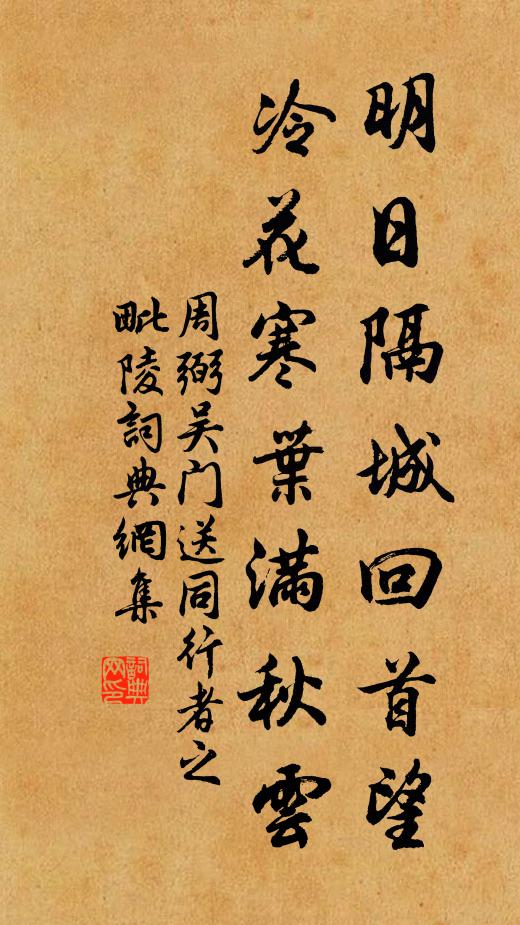 明日隔城回首望
冷花寒葉满秋雲
周弼吴门送同行者之
毗陵詞典網集
詞典网印